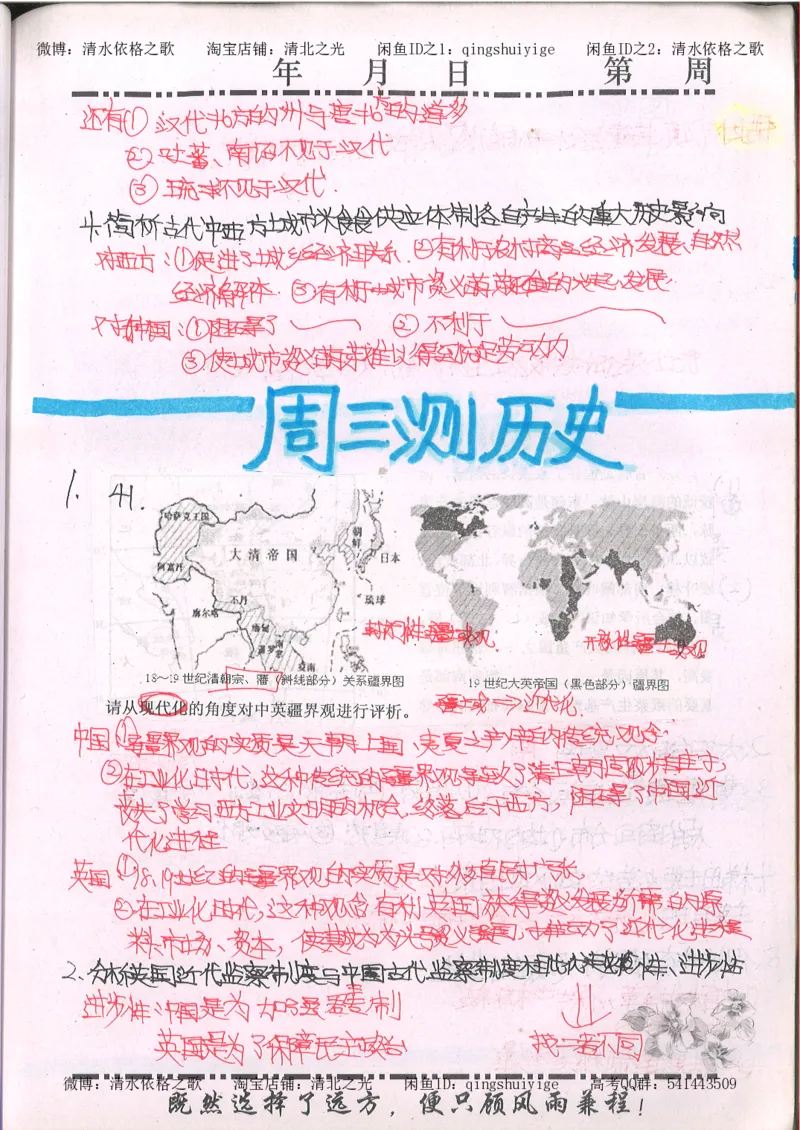 微博：清水依格之歌 淘宝店铺：清北之光 闲鱼ID之1：qingshuiyige 闲鱼ID之2：清水依格之歌
年 月 日 第 周
还有① 汉代北方的州与唐北方的道多
②吐蕃、南诏不见于汉代
③ 琉球不见于汉代.
古代中西方城市粮食供应体制各自产生的重大历史影响
对西方：①促进了城乡经济联系.②有利于农村商品经济发展、自然
经济解体 ③有利于城市资义萌芽的兴起、发展.
对中国：①阻碍了 ② 不利于
③使城市资义萌芽难以得到充足劳动力
周三测历史
1. 41.
哈萨克王国
大清帝国
朝鲜
日本
阿富汗
琉球
不丹
廓尔喀
缅甸
暹罗
安南
封闭性疆土观
开放性疆土观
18～19世纪清朝宗、藩（斜线部分）关系疆界图
19世纪大英帝国（黑色部分）疆界图
请从现代化的角度对中英疆界观进行评析。
疆土观→近代化.
中国：①疆界观的实质是天朝上国、夷夏之方中的传统观念
②在工业化时代，这种传统的疆界观导致了清王朝固步自守，
丧失了学习西方工业文明的机会，终落后于西方，阻碍了中国近
代化进程
英国：①18.19世纪的疆界观的实质是对外殖民扩张.
②在工业化时代，这种观念有利英国获得资义发展所需的原
料、市场、资本，使其成为头号资义强国，推动了近代化进程
2、分析英国近代监察制度与中国古代监察制度相比进步性
进步性：中国是为加强君主专制
英国是为了保障民主政治 找二者不同
微博：清水依格之歌 淘宝店铺：清北之光 闲鱼ID：qingshuiyige 高考QQ群：541443509
既然选择了远方，便只顾风雨兼程！